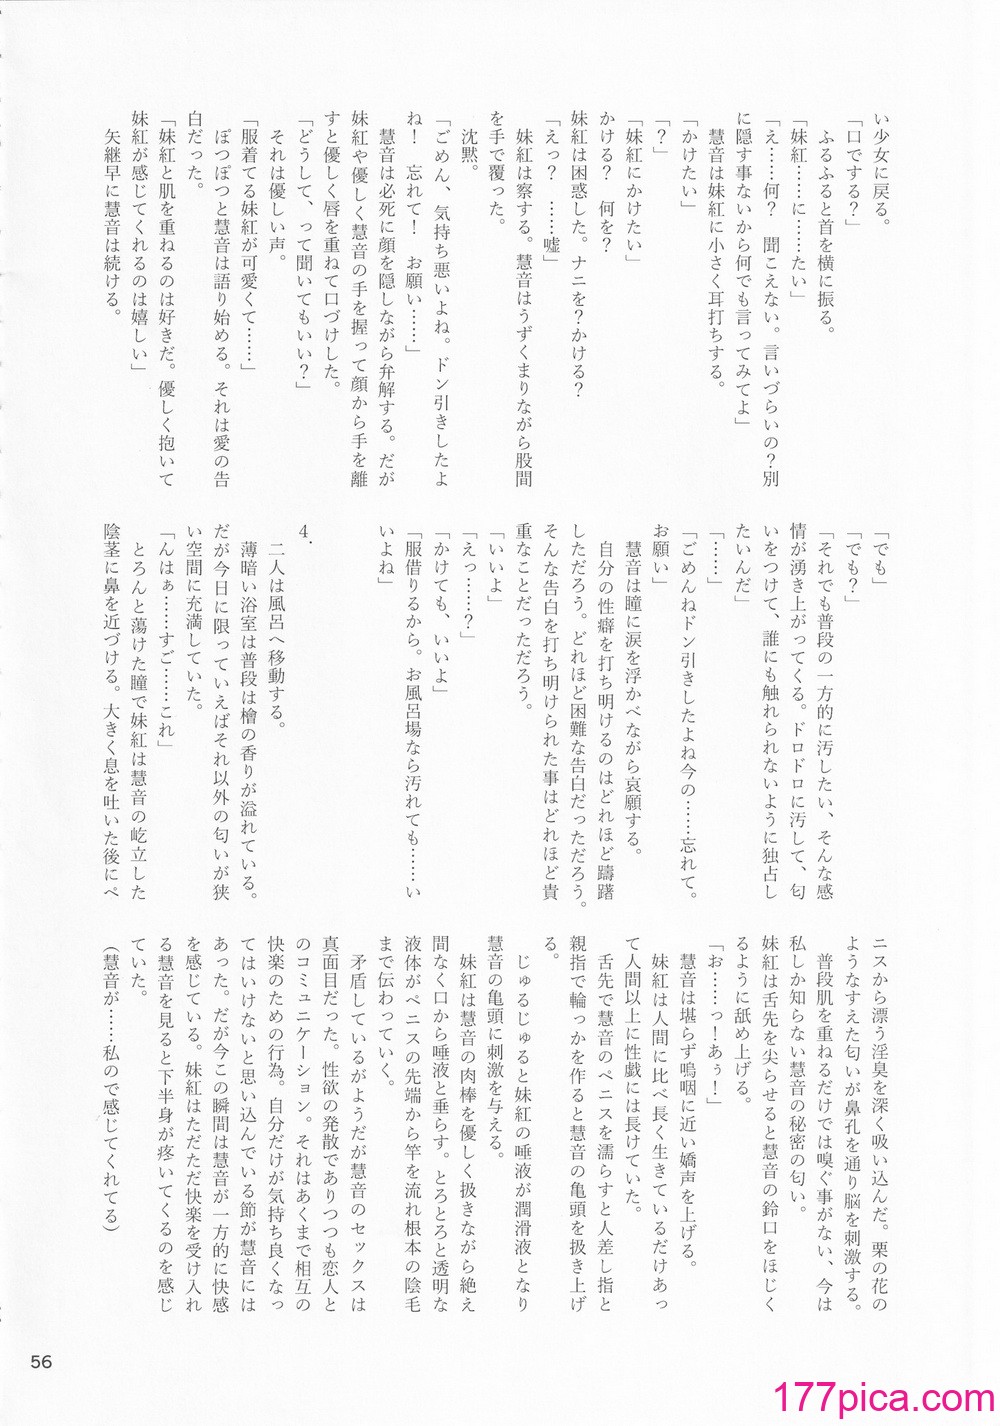 い少女に戻る。
「口でする？」
ふるふると首を横に振る。
「妹紅……に……たい」
「え……何？　聞こえない。言いづらいの？別
に隠す事ないから何でも言ってみてよ」
慧音は妹紅に小さく耳打ちする。
「かけたい」
「？」
「妹紅にかけたい」
かける？　何を？
妹紅は困惑した。ナニを？かける？
「えっ？　……嘘」
妹紅は察する。慧音はうずくまりながら股間
を手で覆った。
沈黙。
「ごめん、気持ち悪いよね。ドン引きしたよ
ね！　忘れて！　お願い……」
慧音は必死に顔を隠しながら弁解する。だが
妹紅や優しく慧音の手を握って顔から手を離
すと優しく唇を重ねて口づけした。
「どうして、って聞いてもいい？」
それは優しい声。
「服着てる妹紅が可愛くて……」
ぽつぽつと慧音は語り始める。それは愛の告
白だった。
「妹紅と肌を重ねるのは好きだ。優しく抱いて
妹紅が感じてくれるのは嬉しい」
矢継早に慧音は続ける。
「でも」
「でも？」
「それでも普段の一方的に汚したい、そんな感
情が湧き上がってくる。ドロドロに汚して、匂
いをつけて、誰にも触れられないように独占し
たいんだ」
「……」
「ごめんねドン引きしたよね今の……忘れて。
お願い」
慧音は瞳に涙を浮かべながら哀願する。
自分の性癖を打ち明けるのはどれほど躊躇
しただろう。どれほど困難な告白だっただろう。
そんな告白を打ち明けられた事はどれほど貴
重なことだっただろう。
「いいよ」
「えっ……？」
「かけても、いいよ」
「服借りるから。お風呂場なら汚れても……い
いよね」
4.
二人は風呂へ移動する。
薄暗い浴室は普段は檜の香りが溢れている。
だが今日に限っていえばそれ以外の匂いが狭
い空間に充満していた。
「んはぁ……すご……これ」
とろんと蕩けた瞳で妹紅は慧音の屹立した
陰茎に鼻を近づける。大きく息を吐いた後にペ
ニスから漂う淫臭を深く吸い込んだ。栗の花の
ようなすえた匂いが鼻孔を通り脳を刺激する。
普段肌を重ねるだけでは嗅ぐ事がない、今は
私しか知らない慧音の秘密の匂い。
妹紅は舌先を尖らせると慧音の鈴口をほじく
るように舐め上げる。
「お……っ！あぅ！」
慧音は堪らず嗚咽に近い嬌声を上げる。
妹紅は人間に比べ長く生きているだけあっ
て人間以上に性戯には長けていた。
舌先で慧音のペニスを濡らすと人差し指と
親指で輪っかを作ると慧音の亀頭を扱き上げ
る。
じゅるじゅると妹紅の唾液が潤滑液となり
慧音の亀頭に刺激を与える。
妹紅は慧音の肉棒を優しく扱きながら絶え
間なく口から唾液と垂らす。とろとろと透明な
液体がペニスの先端から竿を流れ根本の陰毛
まで伝わっていく。
矛盾しているがようだが慧音のセックスは
真面目だった。性欲の発散でありつつも恋人と
のコミュニケーション。それはあくまで相互の
快楽のための行為。自分だけが気持ち良くなっ
てはいけないと思い込んでいる節が慧音には
あった。だが今この瞬間は慧音が一方的に快感
を感じている。妹紅はただただ快楽を受け入れ
る慧音を見ると下半身が疼いてくるのを感じ
ていた。
（慧音が……私ので感じてくれてる）
56
177pica.com